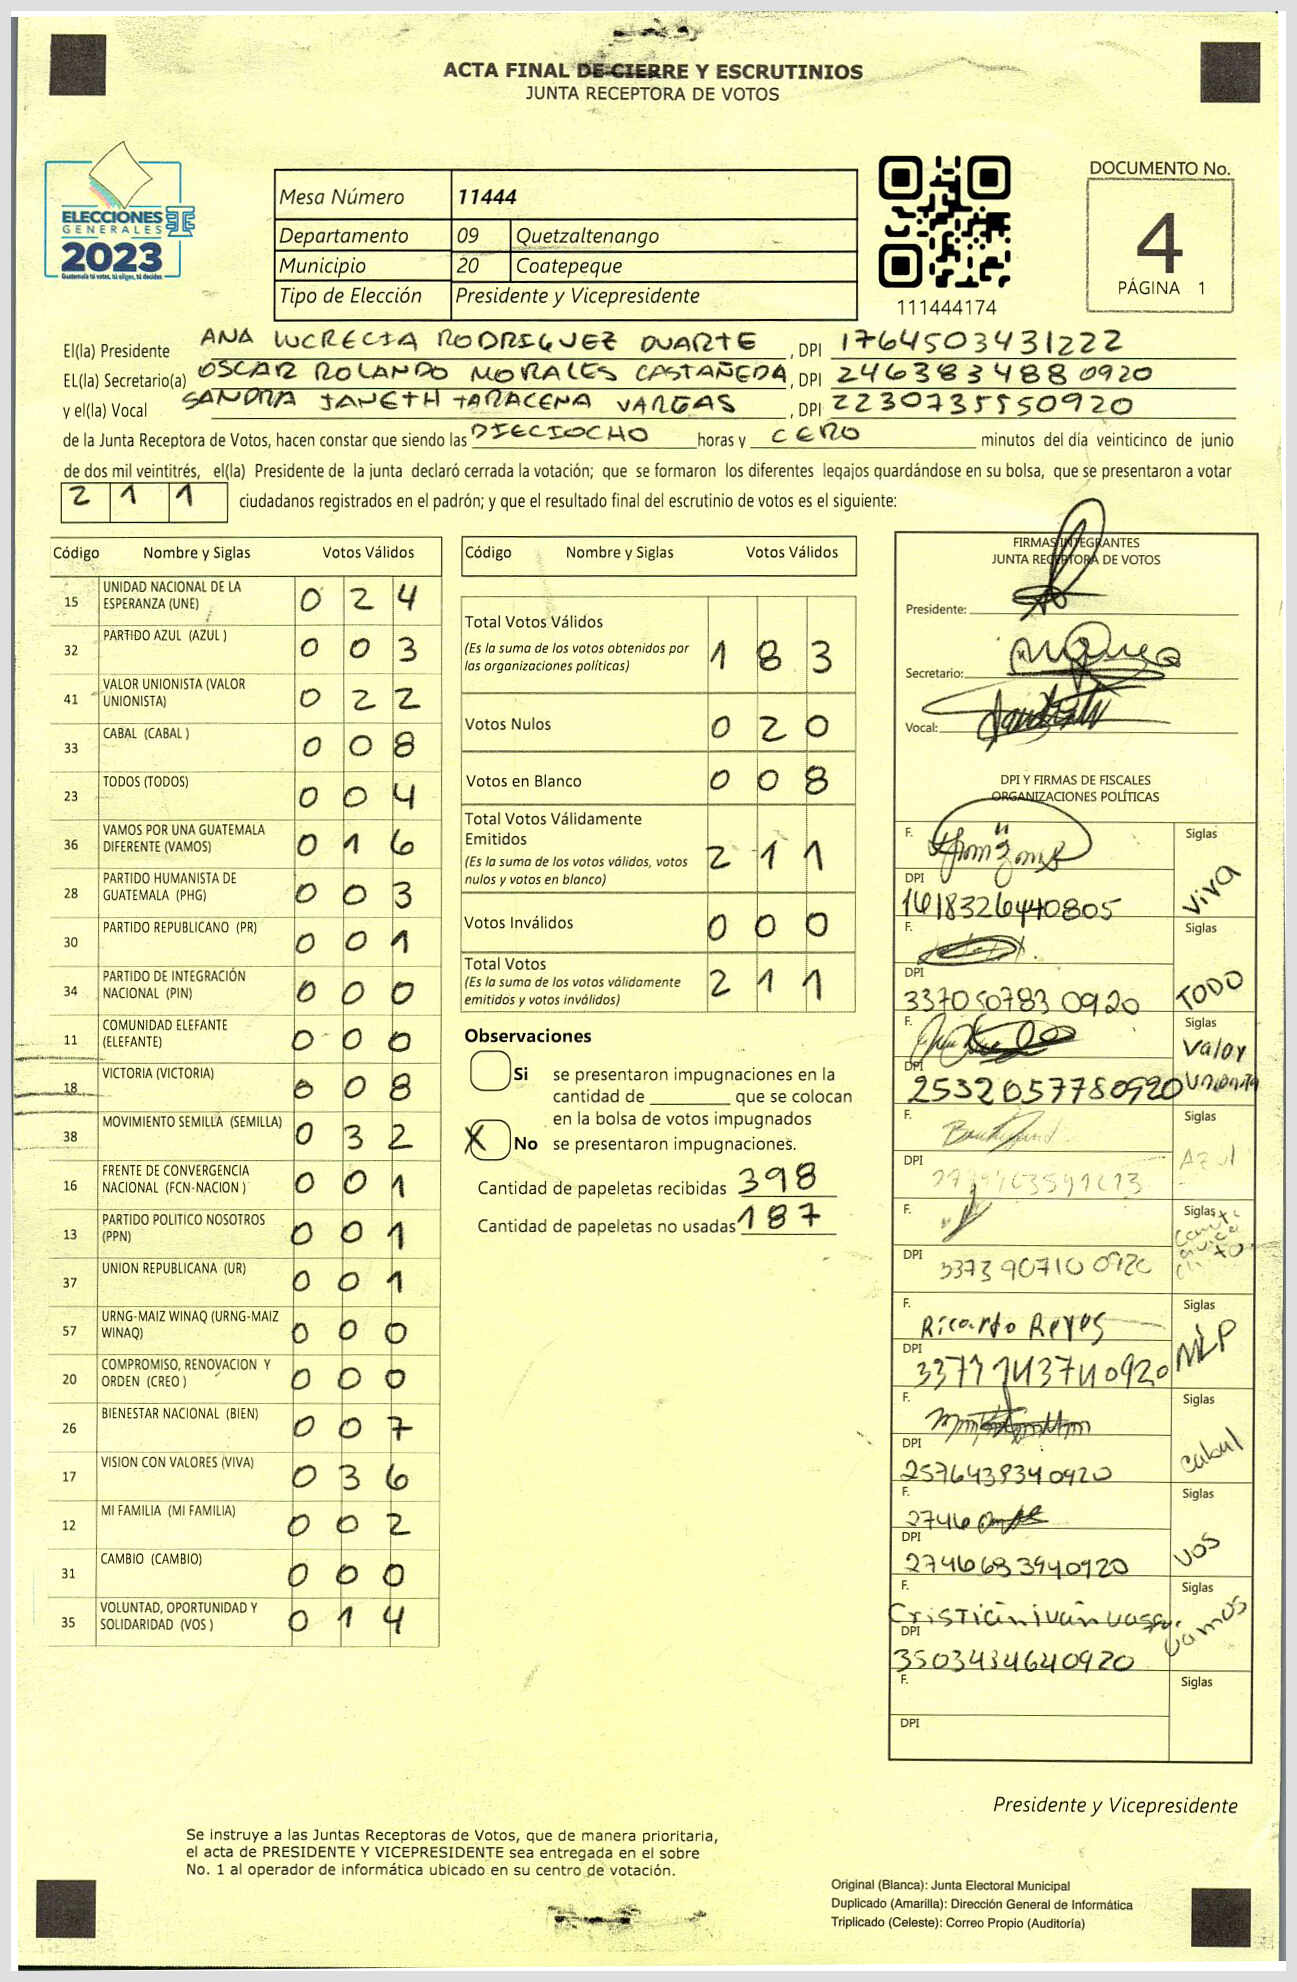 ACTA FINAL DE CIERRE Y ESCRUTINIOS
JUNTA RECEPTORA DE VOTOS
ELECCIONES
GENERALES
2023
Guatemala tú votas, tú eliges, tú decides
Mesa Número 11444
Departamento 09 Quetzaltenango
Municipio 20 Coatepeque
Tipo de Elección Presidente y Vicepresidente
111444174
DOCUMENTO No.
4
PÁGINA 1
El(la) Presidente ANA LUCRECIA RODRIGUEZ DUARTE, DPI 1764503431222
EL(la) Secretario(a) OSCAR ROLANDO MORALES CASTAÑEDA, DPI 2463834880920
y el(la) Vocal SANDRA JANETH TARACENA VARGAS, DPI 2230735550920
de la Junta Receptora de Votos, hacen constar que siendo las DIECIOCHO horas y CERO minutos del día veinticinco de junio
de dos mil veintitrés, el(la) Presidente de la junta declaró cerrada la votación; que se formaron los diferentes legajos guardándose en su bolsa, que se presentaron a votar
2 1 1 ciudadanos registrados en el padrón; y que el resultado final del escrutinio de votos es el siguiente:
Código Nombre y Siglas Votos Válidos
15 UNIDAD NACIONAL DE LA ESPERANZA (UNE) 0 2 4
32 PARTIDO AZUL (AZUL ) 0 0 3
41 VALOR UNIONISTA (VALOR UNIONISTA) 0 2 2
33 CABAL (CABAL ) 0 0 8
23 TODOS (TODOS) 0 0 4
36 VAMOS POR UNA GUATEMALA DIFERENTE (VAMOS) 0 1 6
28 PARTIDO HUMANISTA DE GUATEMALA (PHG) 0 0 3
30 PARTIDO REPUBLICANO (PR) 0 0 1
34 PARTIDO DE INTEGRACIÓN NACIONAL (PIN) 0 0 0
11 COMUNIDAD ELEFANTE (ELEFANTE) 0 0 0
18 VICTORIA (VICTORIA) 0 0 8
38 MOVIMIENTO SEMILLA (SEMILLA) 0 3 2
16 FRENTE DE CONVERGENCIA NACIONAL (FCN-NACION ) 0 0 1
13 PARTIDO POLITICO NOSOTROS (PPN) 0 0 1
37 UNION REPUBLICANA (UR) 0 0 1
57 URNG-MAIZ WINAQ (URNG-MAIZ WINAQ) 0 0 0
20 COMPROMISO, RENOVACION Y ORDEN (CREO ) 0 0 0
26 BIENESTAR NACIONAL (BIEN) 0 0 7
17 VISION CON VALORES (VIVA) 0 3 6
12 MI FAMILIA (MI FAMILIA) 0 0 2
31 CAMBIO (CAMBIO) 0 0 0
35 VOLUNTAD, OPORTUNIDAD Y SOLIDARIDAD (VOS ) 0 1 4
Código Nombre y Siglas Votos Válidos
Total Votos Válidos 1 8 3
(Es la suma de los votos obtenidos por
las organizaciones políticas)
Votos Nulos 0 2 0
Votos en Blanco 0 0 8
Total Votos Válidamente
Emitidos 2 1 1
(Es la suma de los votos válidos, votos
nulos y votos en blanco)
Votos Inválidos 0 0 0
Total Votos 2 1 1
(Es la suma de los votos válidamente
emitidos y votos inválidos)
Observaciones
Si se presentaron impugnaciones en la
cantidad de ________ que se colocan
en la bolsa de votos impugnados
X No se presentaron impugnaciones.
Cantidad de papeletas recibidas 398
Cantidad de papeletas no usadas 187
FIRMAS INTEGRANTES
JUNTA RECEPTORA DE VOTOS
Presidente:
Secretario:
Vocal:
DPI Y FIRMAS DE FISCALES
ORGANIZACIONES POLÍTICAS
F. Siglas
DPI 1618326440805 Viva
F. Siglas
DPI 3370507830920 TODO
F. Siglas
DPI 2532057780920 Valor Unionista
F. Siglas
DPI Azul
F. Siglas
DPI
F. Ricardo Reyes Siglas
DPI MLP
F. Siglas
DPI 2576438340920 Cabal
F. 2746 Siglas
DPI 2746683940920 VOS
F. Cristian ivan Siglas
DPI 3503434640920 Vamos
F. Siglas
DPI
Presidente y Vicepresidente
Se instruye a las Juntas Receptoras de Votos, que de manera prioritaria,
el acta de PRESIDENTE Y VICEPRESIDENTE sea entregada en el sobre
No. 1 al operador de informática ubicado en su centro de votación.
Original (Blanca): Junta Electoral Municipal
Duplicado (Amarilla): Dirección General de Informática
Triplicado (Celeste): Correo Propio (Auditoría)